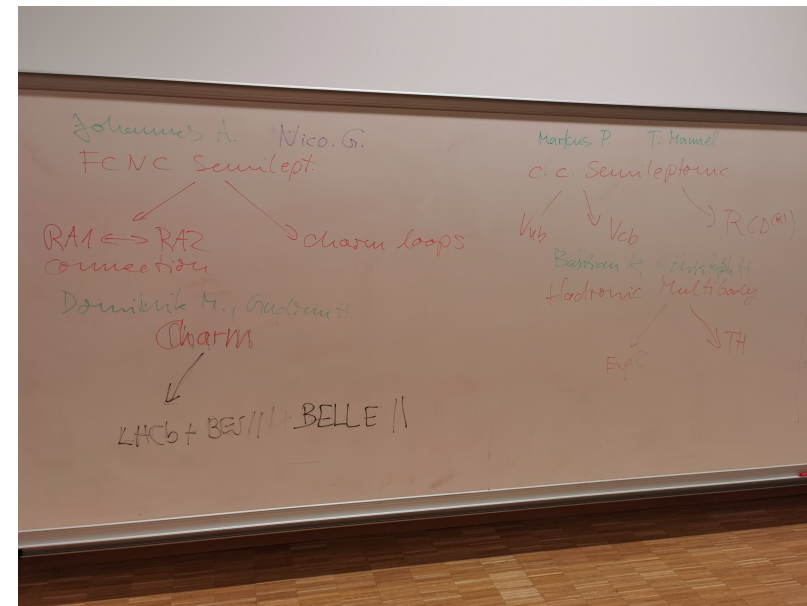 Johannes A. Nico. G.
FCNC Semilept.
RA1 <-> RA2
connection
charm loops
Dominik M., Gudrun H
Charm
LHCb + BES III + BELLE II
Markus P T. Mannel
c. c. Semileptonic
Vub Vcb R(D(*))
Bastian K, Christoph H.
Hadronic Multibody
Exp? TH